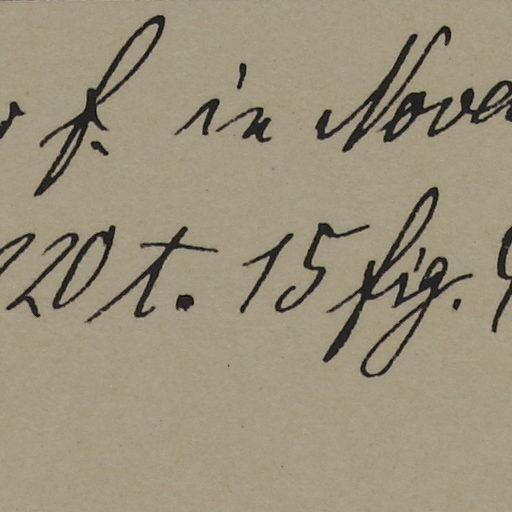 f. in Nova
220 t. 15 fig. 9